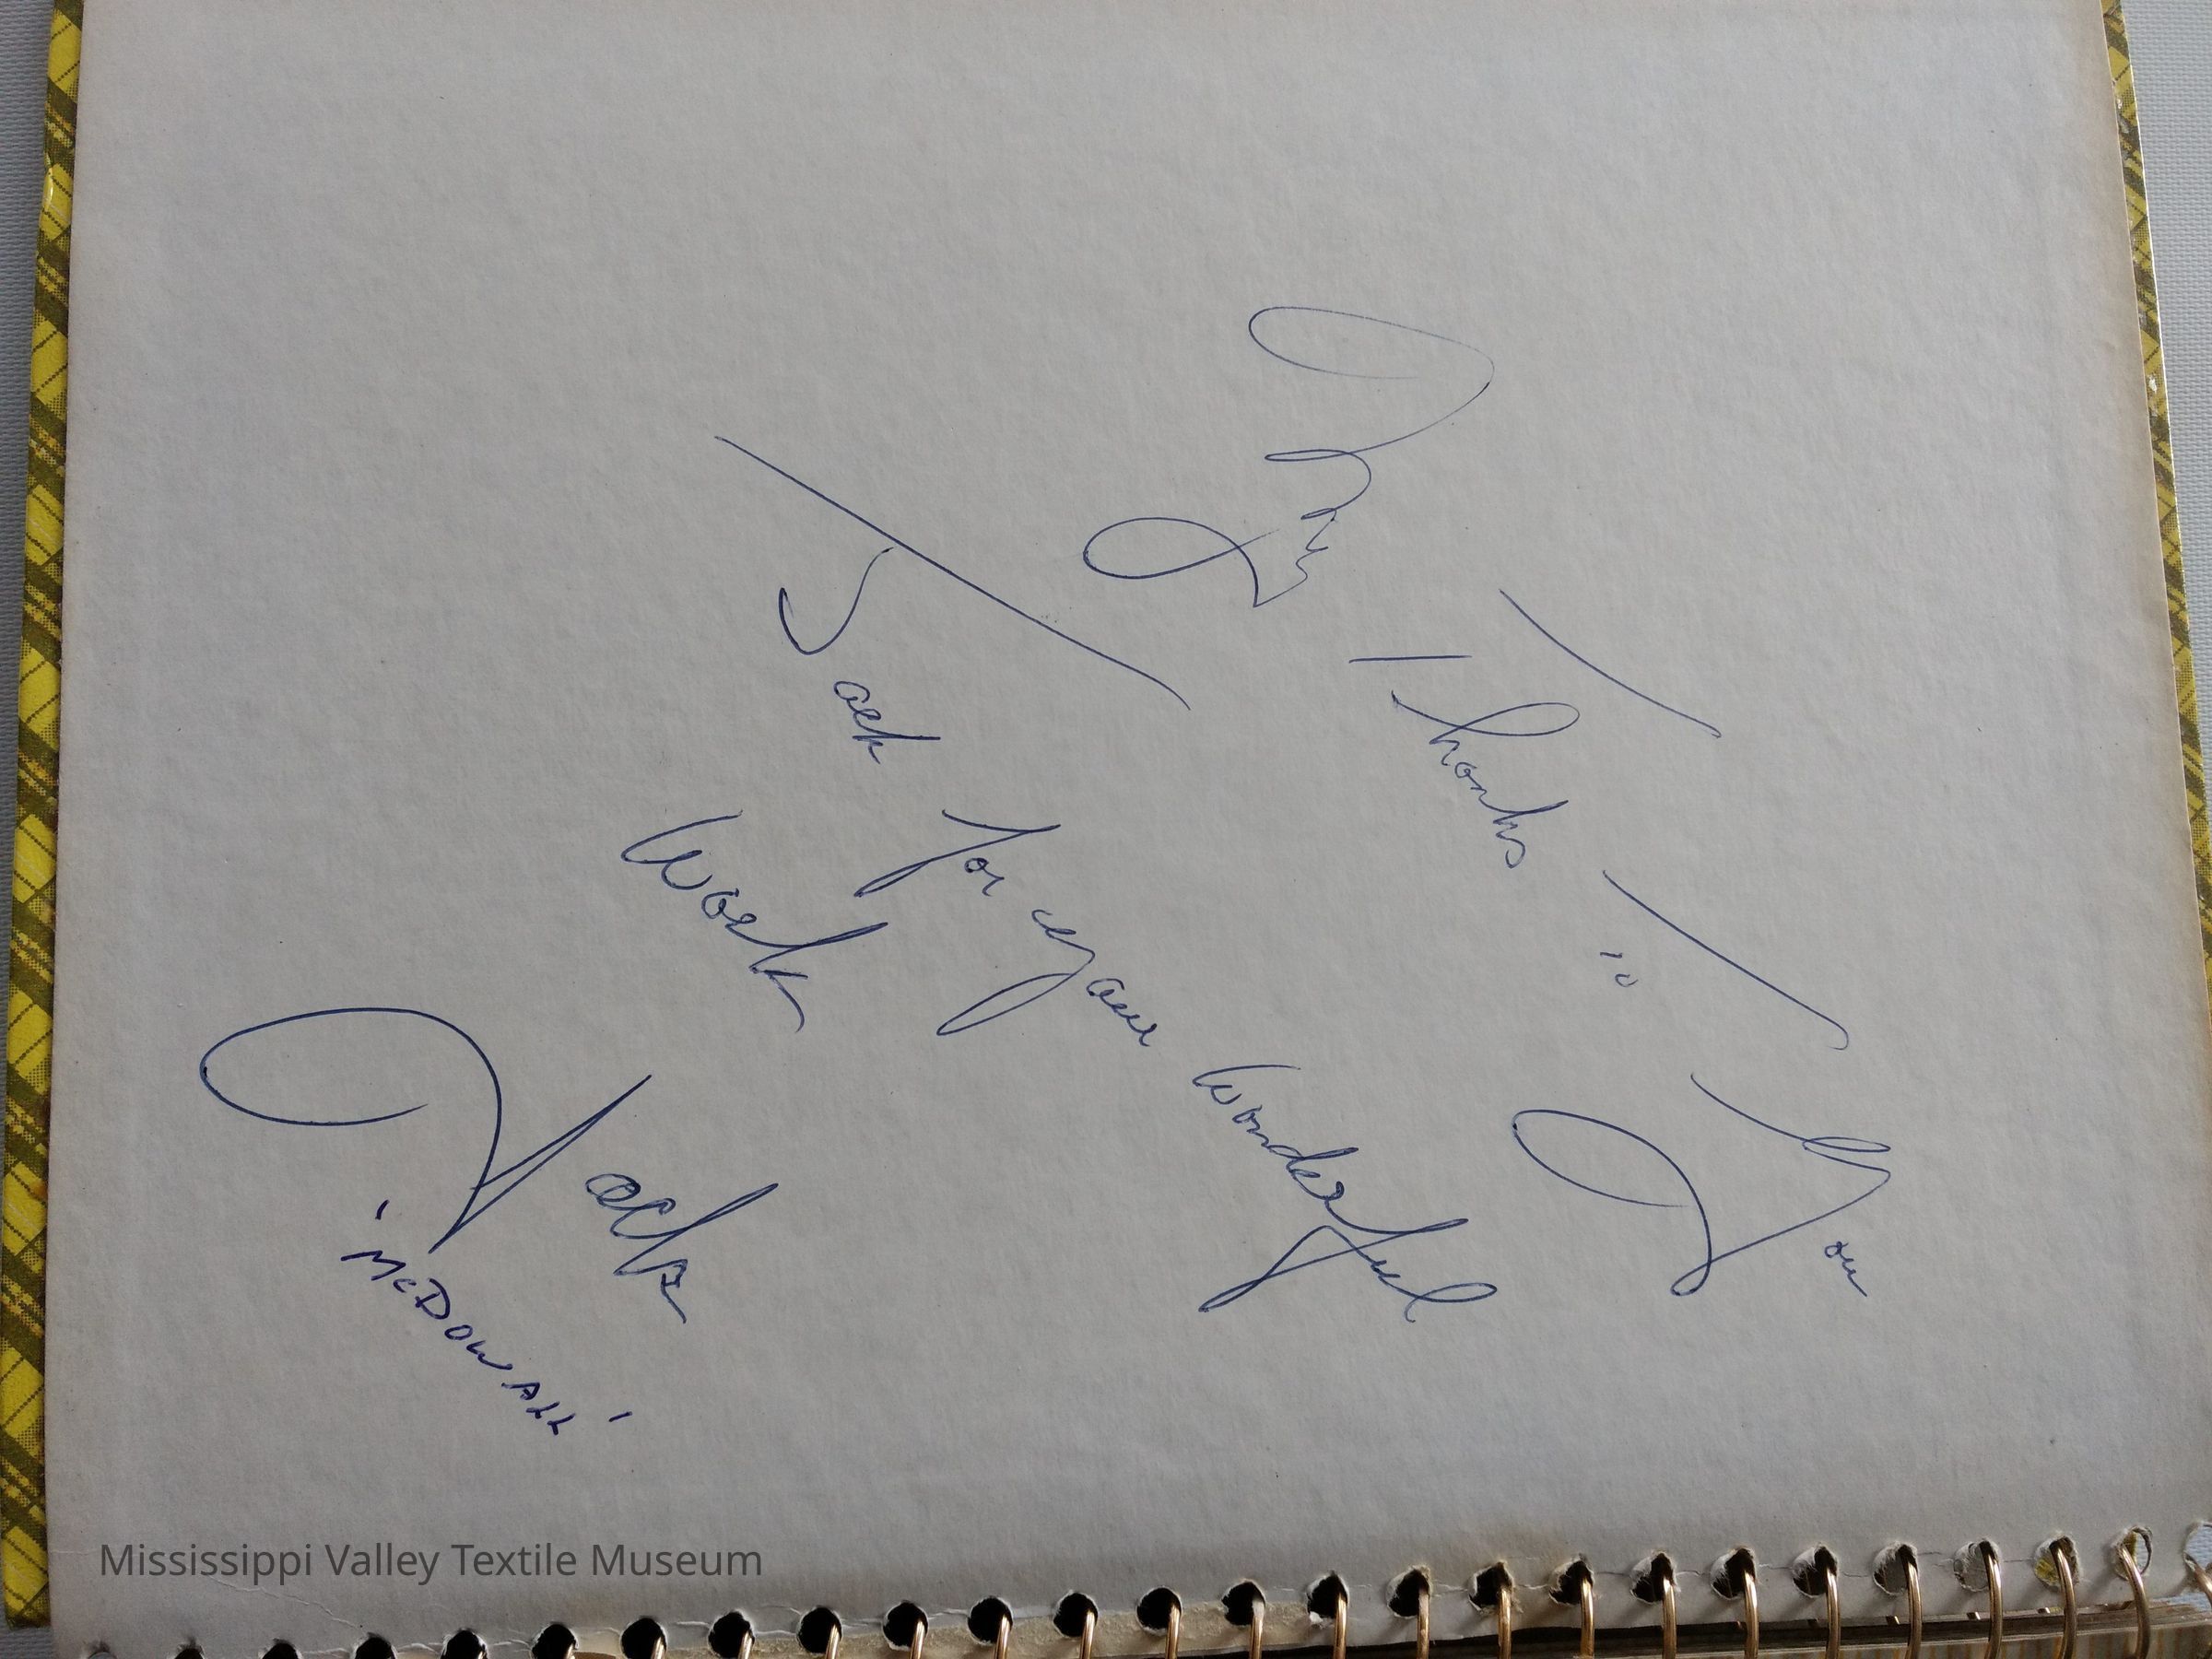 My Thanks To You
Jack for your wonderful
Work
Jack
'McDOWALL'
Mississippi Valley Textile Museum